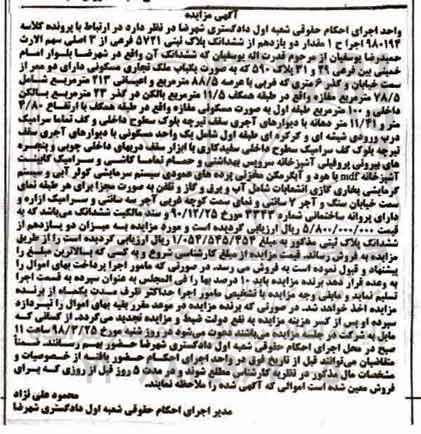 آگهی مزایده
واحد اجرای احکام حقوقی شعبه اول دادگستری شهرضا در نظر دارد در ارتباط با پرونده کلاسه
۹۸۰۱۹۴ اجرا ح ۱ مقدار دو یازدهم از ششدانگ پلاک ثبتی ۵۷۲۱ فرعی از ۳ اصلی سهم الارث
حمیدرضا یوسفیان از مرحوم قدرت اله یوسفیان که ششدانگ آن واقع در شهرضا بلوار امام
خمینی بین فرعی ۲۹ و ۳۱ پلاک ۵۹۰ که به صورت یکباب ملک تجاری مسکونی دارای دو ممر از
سمت خیابان و گذر ۶ متری که فربی با عرصه ۸۸/۵ مترمربع و اعیانی ۲۱۳ مترمربع شامل
۷۸/۵ مترمربع مغازه واقع در طبقه همکف ۱۱/۵ مترمربع بالکن در گذر ۲۳ مترمربع بالکن
داخلی و ۱۰۰ مترمربع طبقه اول به صورت مسکونی مغازه واقع در طبقه همکف با ارتفاع ۴/۸۰
متر و ۱۱/۲۱ متر دهانه با دیوارهای آجری سقف تیرچه بلوک سطوح داخلی و کف تماما سرامیک
درب ورودی شیشه ای و کرکره ای طبقه اول شامل یک واحد مسکونی با دیوارهای آجری سقف
تیرچه بلوک کف سرامیک سطوح داخلی سفیدکاری با ابزار سقف دربهای داخلی چوبی و پنجره
های بیرونی پروفیلی آشپزخانه سرویس بهداشتی و حمام تماما کاشی و سرامیک کابینت
آشپزخانه mdf با هود و آبگرمکن مخزنی پرده های عمودی سیستم سرمایشی کولر آبی و سیستم
گرمایشی بخاری گازی انشعابات شامل آب و برق و گاز و تلفن به صورت مجزا برای هر طبقه نمای
سمت خیابان سنگ و آجر ۷ سانتی و نمای سمت کوچه فربی آجر سه سانتی و سرامیک ازاره و
دارای پروانه ساختمانی شماره ۳۳۴۳ مورخ ۹۰/۱۲/۲۵ و سند مالکیت ششدانگ می‌باشد که به
قیمت ۵/۸۰۰/۰۰۰/۰۰۰ ریال ارزیابی گردیده است و مورد مزایده به میزان دو یازدهم از
ششدانگ پلاک ثبتی مذکور به مبلغ ۱/۰۵۴/۵۴۵/۴۵۴ ریال ارزیابی گردیده است را از طریق
مزایده به فروش رساند. قیمت مزایده از مبلغ کارشناسی شروع و به کسی که بالاترین مبلغ را
پیشنهاد و قبول نموده است به فروش می رسد. در صورتی که مامور اجرا پرداخت بهای اموال را
به وعده قرار دهد برنده مزایده باید ۱۰ درصد بها را فی المجلس به عنوان سپرده به قسمت اجرا
تسلیم نماید و مابقی وجه مزایده با تشخیص مامور اجرا حداکثر ظرف مدت یکماه از برنده
مزایده اخذ خواهد شد. در صورتی که برنده مزایده در موعد مقرر بقیه بهای اموال را نپردازد
سپرده او پس از کسر هزینه مزایده به نفع دولت ضبط و مزایده تجدید می‌گردد. از کسانی که
مایل به شرکت در جلسه مزایده می‌باشند دعوت می‌شود در روز شنبه مورخ ۹۸/۳/۲۵ ساعت ۱۱
صبح در محل اجرای احکام حقوقی شعبه اول دادگستری شهرضا حضور بهم رسانند. ضمناً
متقاضیان می‌توانند قبل از تاریخ فوق در واحد اجرای احکام حضور یافته از خصوصیات و
مشخصات مال مذکور در نظریه کارشناس مطلع شوند و در مدت ۵ روز قبل از روزی که برای
فروش معین شده است اموالی که آگهی شده را ملاحظه نمایند.
محمود علی نژاد
مدیر اجرای احکام حقوقی شعبه اول دادگستری شهرضا